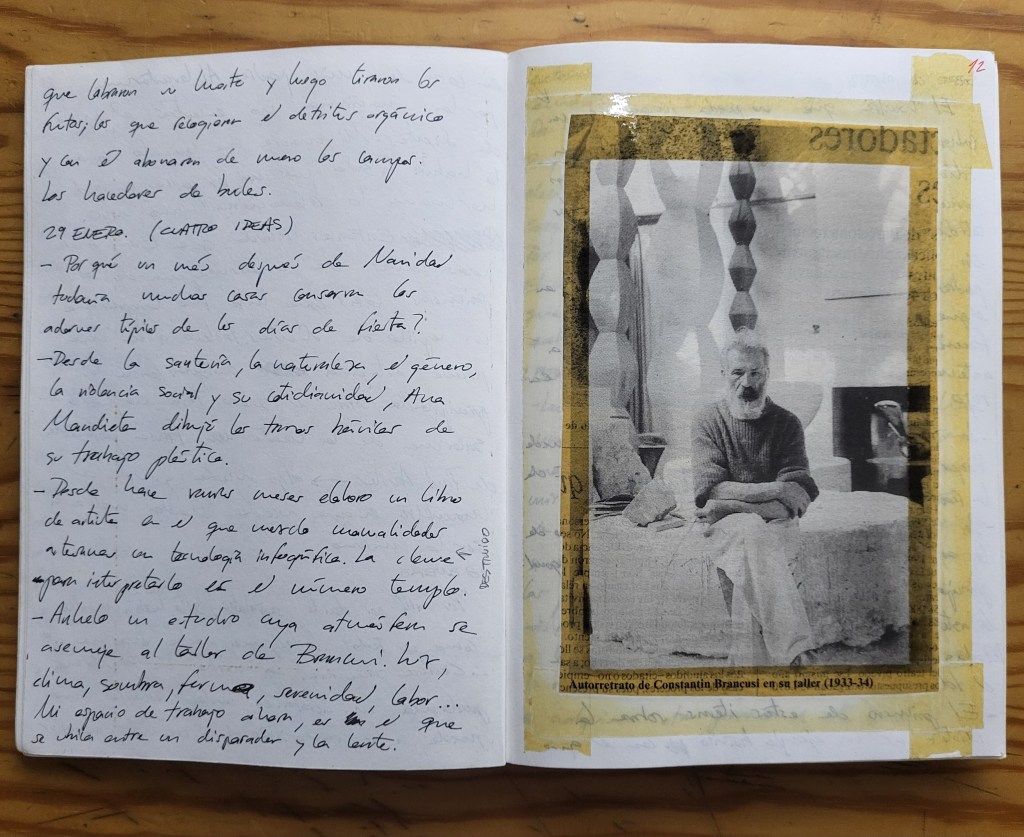 que labraron su huerto y luego tiraron los
frutos; los que recogieron el detritus orgánico
y con él abonaron de nuevo los campos.
Los hacedores de bucles.
29 ENERO. (CUATRO IDEAS)
- Por qué un mes después de Navidad
todavía muchas casas conservan los
adornos típicos de los días de fiesta?
- Desde la santería, la naturaleza, el género,
la violencia social y su cotidianidad, Ana
Mandieta dibujó las tramas básicas de
su trabajo plástico.
- Desde hace varios meses elaboro un libro
de artista en el que mezclo manualidades
artesanas con tecnología infográfica. La clave
para interpretarlo es el número templo.
DESTINIDO
- Anhelo un estudio cuya atmósfera se
asemeje al taller de Brancusi. Luz,
clima, sombra, forma, serenidad, labor...
Mi espacio de trabajo ahora, es el que
se ubica entre un disparador y la lente.
12
ctadores
Autorretrato de Constantin Brancusi en su taller (1933-34)